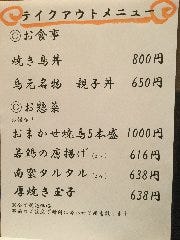 テイクアウトメニュー
◎お食事
焼き鳥丼 800円
鳥元名物 親子丼 650円
◎お惣菜
おまかせ焼鳥5本盛 1000円
若鶏の唐揚げ 616円
南蛮タルタル 638円
厚焼き玉子 638円